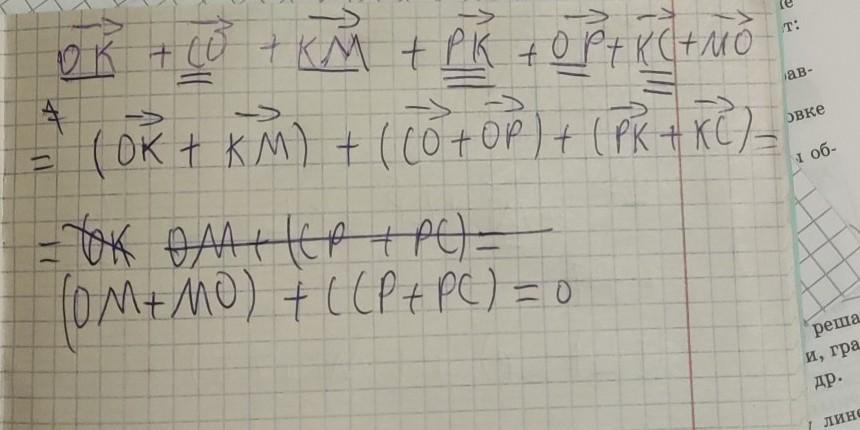 OK + CO + KM + PK + OP + KC + MO
= (OK + KM) + (CO + OP) + (PK + KC) =
= OK OM + (CP + PC) =
(OM + MO) + (CP + PC) = 0
т:
ав-
овке
об-
реша
и, гра
др.
лине